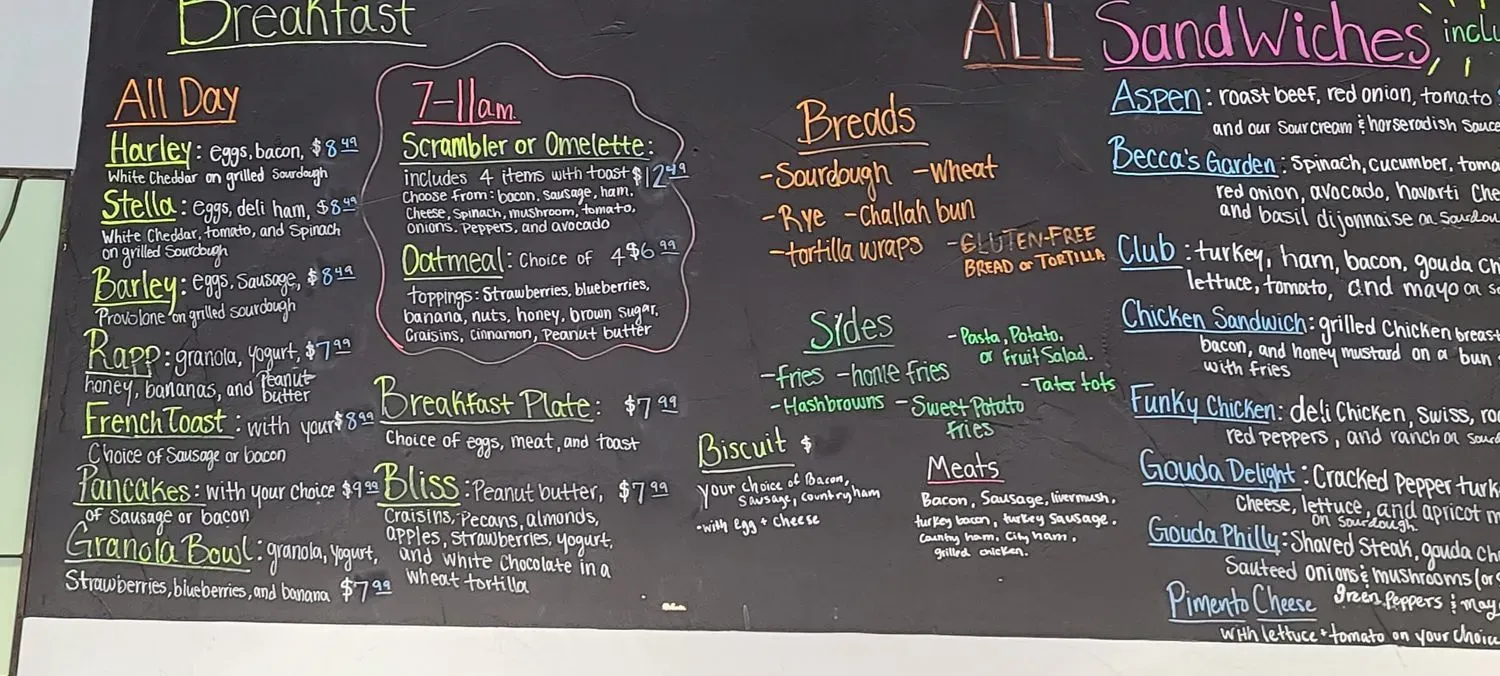 Breakfast
All Day
Harley: eggs, bacon, $8.49
White Cheddar on grilled Sourdough
Stella: eggs, deli ham, $8.49
White Cheddar, tomato, and Spinach
on grilled Sourdough
Barley: eggs, Sausage, $8.49
Provolone on grilled sourdough
Rapp: granola, yogurt, $7.99
honey, bananas, and Peanut
butter
French Toast: with your $8.99
Choice of Sausage or bacon
Pancakes: with your choice $9.99
of Sausage or bacon
Granola Bowl: granola, yogurt,
Strawberries, blueberries, and banana $7.99
7-11am
Scrambler or Omelette:
includes 4 items with toast $12.49
Choose from: bacon, sausage, ham,
Cheese, Spinach, mushroom, tomato,
onions, Peppers, and avocado
Oatmeal: Choice of 4 $6.99
toppings: Strawberries, blueberries,
banana, nuts, honey, brown sugar,
Craisins, cinnamon, Peanut butter
Breakfast Plate: $7.99
Choice of eggs, meat, and toast
Bliss: Peanut butter, $7.99
Craisins, Pecans, almonds,
apples, strawberries, yogurt,
and white Chocolate in a
wheat tortilla
Breads
-Sourdough -Wheat
-Rye -Challah bun
-tortilla wraps -GLUTEN-FREE
BREAD or TORTILLA
Sides
-fries -home fries
-Hashbrowns -Sweet Potato
fries
-Pasta, Potato,
or fruit Salad.
-Tater tots
Biscuit $
your choice of Bacon,
Sausage, country ham
•with Egg + cheese
Meats
Bacon, Sausage, livermush,
turkey bacon, turkey Sausage,
Country ham, City ham,
grilled chicken.
ALL Sandwiches inclu
Aspen: roast beef, red onion, tomato
and our Sour cream & horseradish Sauce
Becca's Garden: Spinach, cucumber, toma
red onion, avocado, havarti Che
and basil dijonnaise on Sourdou
Club: turkey, ham, bacon, gouda Ch
lettuce, tomato, and mayo on so
Chicken Sandwich: grilled Chicken breast
bacon, and honey mustard on a bun
with fries
Funky Chicken: deli Chicken, Swiss, roa
red peppers, and ranch on sourd
Gouda Delight: Cracked Pepper turk
Cheese, lettuce, and apricot m
on sourdough
Gouda Philly: Shaved Steak, gouda ch
Sauteed onions & mushrooms (or
green Peppers & may
Pimento Cheese
with lettuce + tomato on your choic